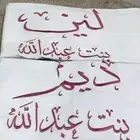 لين
بنت عبدالله
ديم
بنت عبدالله